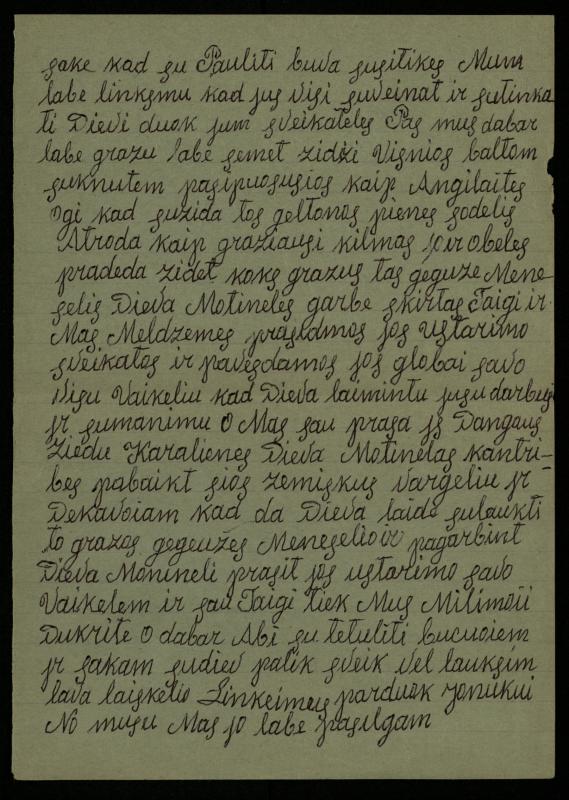 sake kad su Pauliti buva susitikes Mum
labe linksmu kad jus visi suveinat ir sutinka
ti Dievi duok jum sveikateles Pas mus dabar
labe grazu labe semet zidzi Visnios baltom
suknutem pasipuosusios kaip Angilaites
Ogi kad suzida tos geltonos pienes sodelis
Atroda kaip graziausi kilmas jovir obeles
pradeda zidet koks grazus tas geguze Mene
selis Dieva Motineles garbe skirtas Taigi ir
Mas Meldzemes prasidmos jos ustarimo
sveikatos ir pavesdamos jos globai savo
Visu Vaikeliu kad Dieva laimintu jusu darbus
jr sumanimu O Mas sau prasa js Dangaus
ziedu Karalienes Dieva Motinelas kantri-
bes pabaikt sios zemiskus vargeliu jr
Dekavoiam kad da Dieva laide sulaukti
to grazos geguzes Meneselio ir pagarbint
Dieva Monineli prasit jos ustarimo savo
Vaikelem ir sau Taigi tiek Mus Milimoji
Dukrite O dabar Abi su tetuliti bucuoiem
jr sakam sudiev palik sveik vel lauksim
lava laiskelio Linkeimus parduok jonukui
No musu Mas jo labe pasilgam